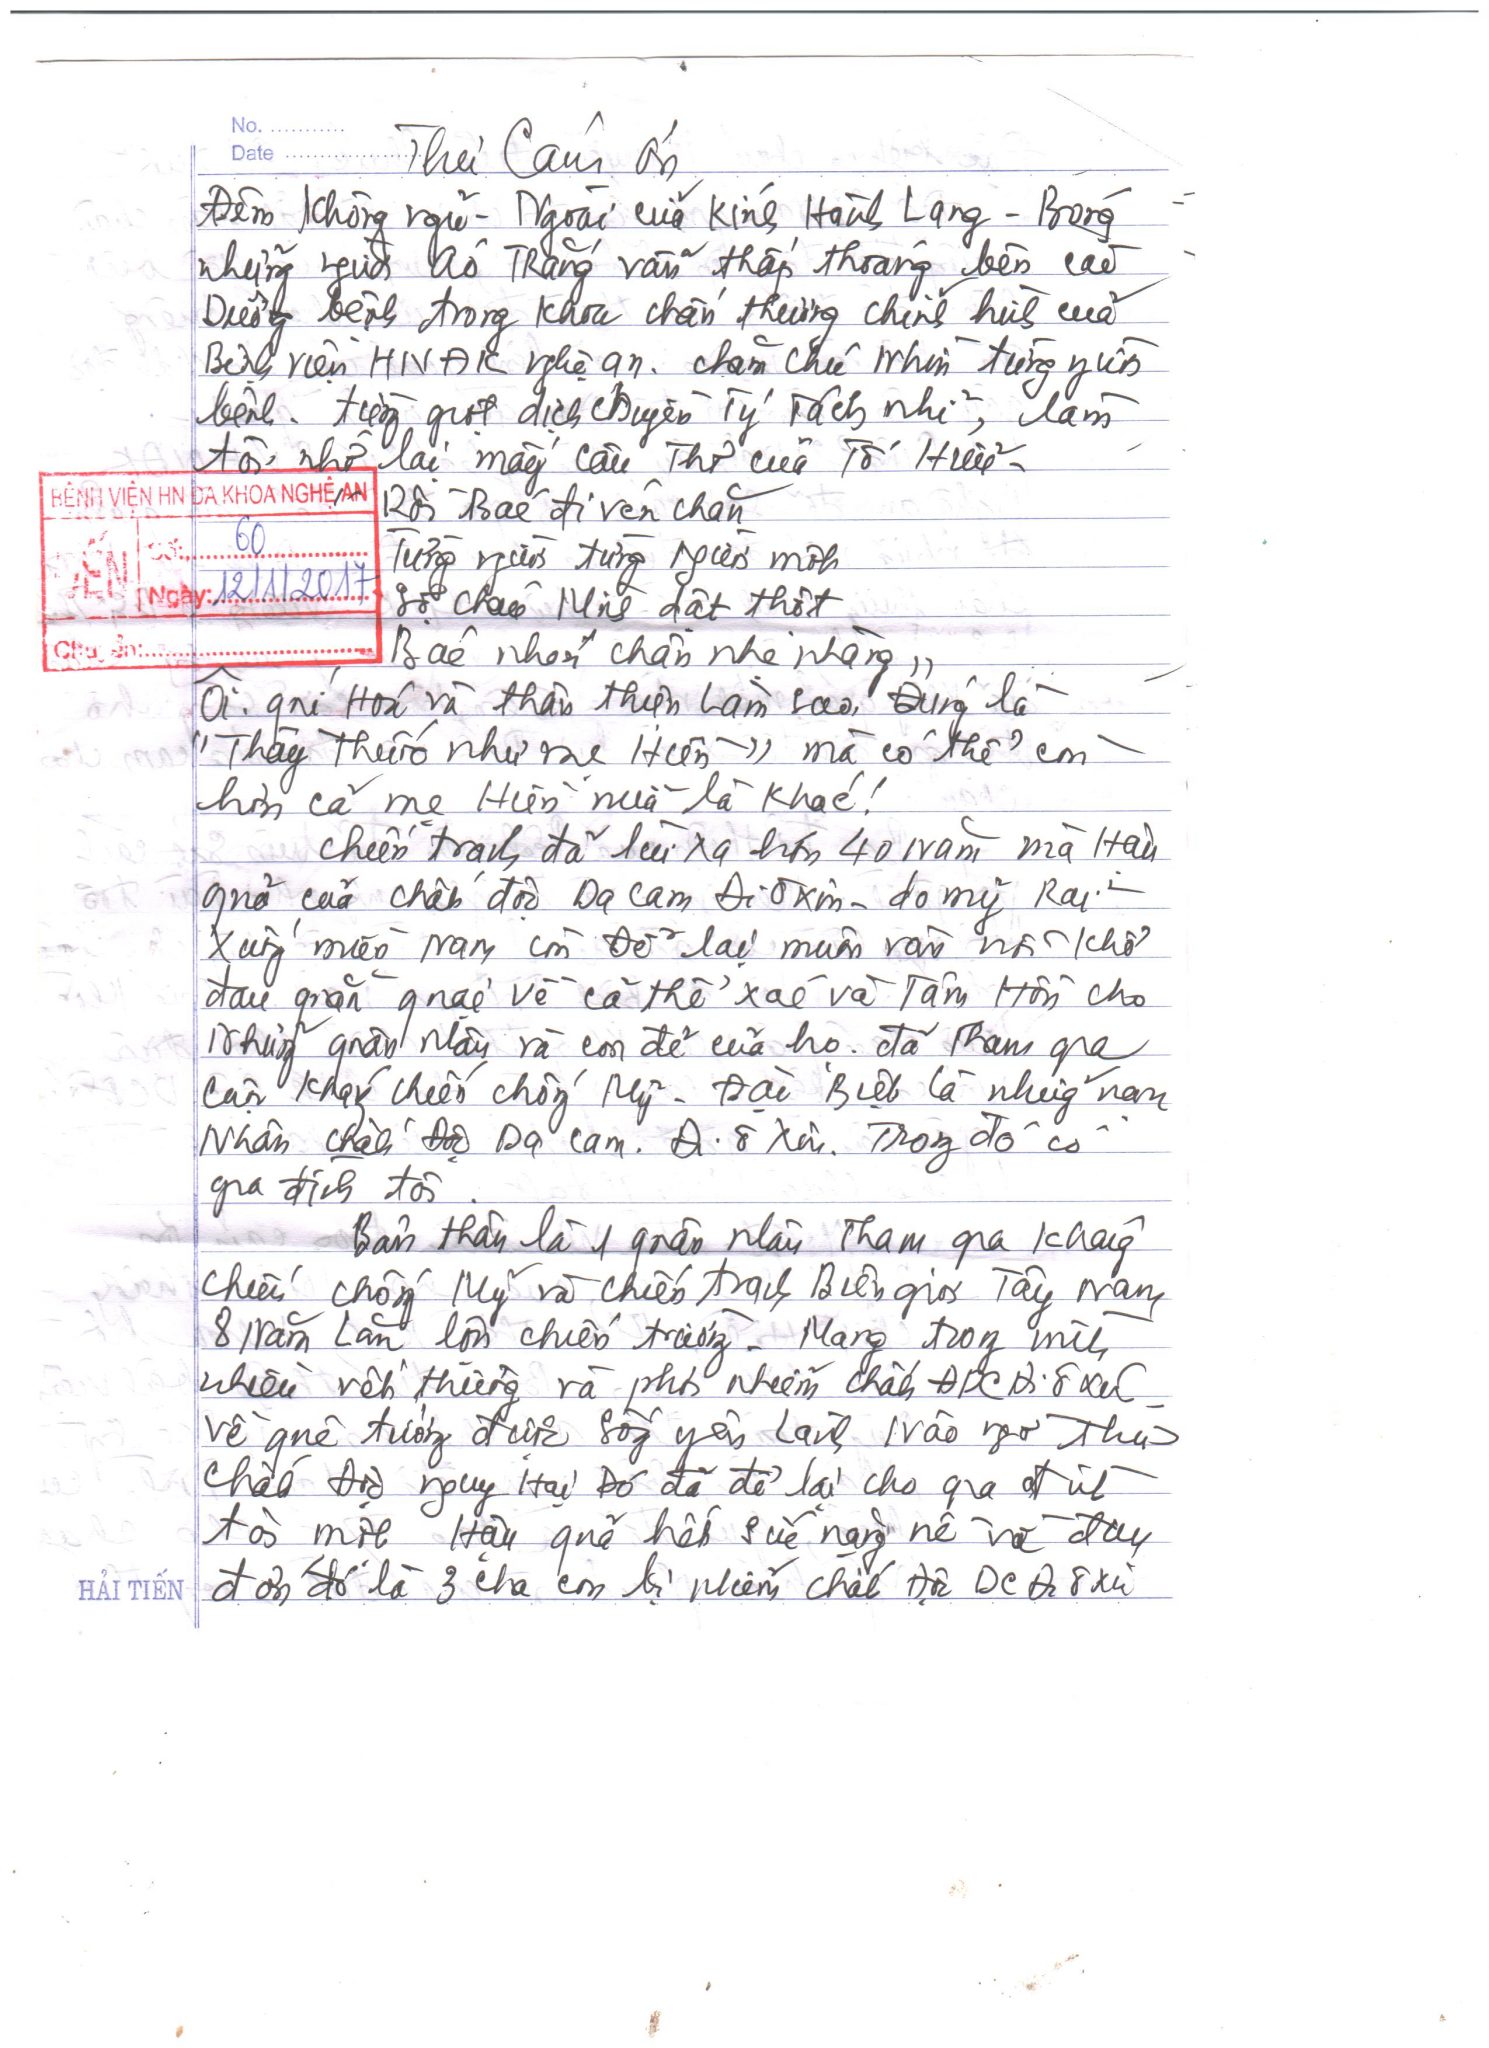 No. ...........
Date ....................
Thư Cảm ơn
Đêm không ngủ - Ngoài cửa kính Hành Lang - Bóng
những người áo Trắng vẫn thấp thoáng bên các
Dường bệnh trong khoa chấn thương chỉnh hình của
Bệnh viện HNĐK nghệ an. chăm chú Nhìn từng người
bệnh. từng giọt dịch chuyền Tý Tách nhỉ, làm
tôi nhớ lại mấy câu Thơ của Tố Hữu -
BỆNH VIỆN HN ĐA KHOA NGHỆ AN
ĐẾN
Số: 60
Ngày: 12/1/2017
Chuyển:
Rồi Bác đi vén chăn
Từng người từng người một
Sợ cháu Mình dật thột
Bác nhón chân nhẹ nhàng"
Ôi. quí Hoá và thân thiện Làm sao, Đúng là
"Thầy Thuốc như mẹ Hiền" mà có thể còn
hơn cả mẹ Hiền nữa là khác!
chiến tranh đã lùi xa hơn 40 Năm mà Hậu
quả của chất độc Da cam Đi ô xin - do mỹ Rải
xuống miền Nam còn Để lại muôn vàn nỗi khổ
đau quằn quại về cả thể xác và Tâm Hồn cho
Những quân nhân và con đẻ của họ. đã Tham gia
cuộc kháng chiến chống Mỹ - Đặc Biệt là những nạn
Nhân chất Độc Da cam. Đi ô Xin. Trong đó có
gia đình tôi.
Bản thân là 1 quân nhân Tham gia kháng
chiến chống Mỹ và chiến tranh Biên giới Tây Nam
8 Năm Lăn lộn chiến trường - Mang trong mình
nhiều vết thương và phơi nhiễm chất ĐDC Đi ô xin
về quê tưởng được sống yên Lành Nào ngờ thứ
chất Độc nguy Hại Đó đã để lại cho gia đình
tôi một Hậu quả hết sức nặng nề và đau
đớn đó là 3 cha con bị nhiễm chất độc DC Đi ô xin
HẢI TIẾN